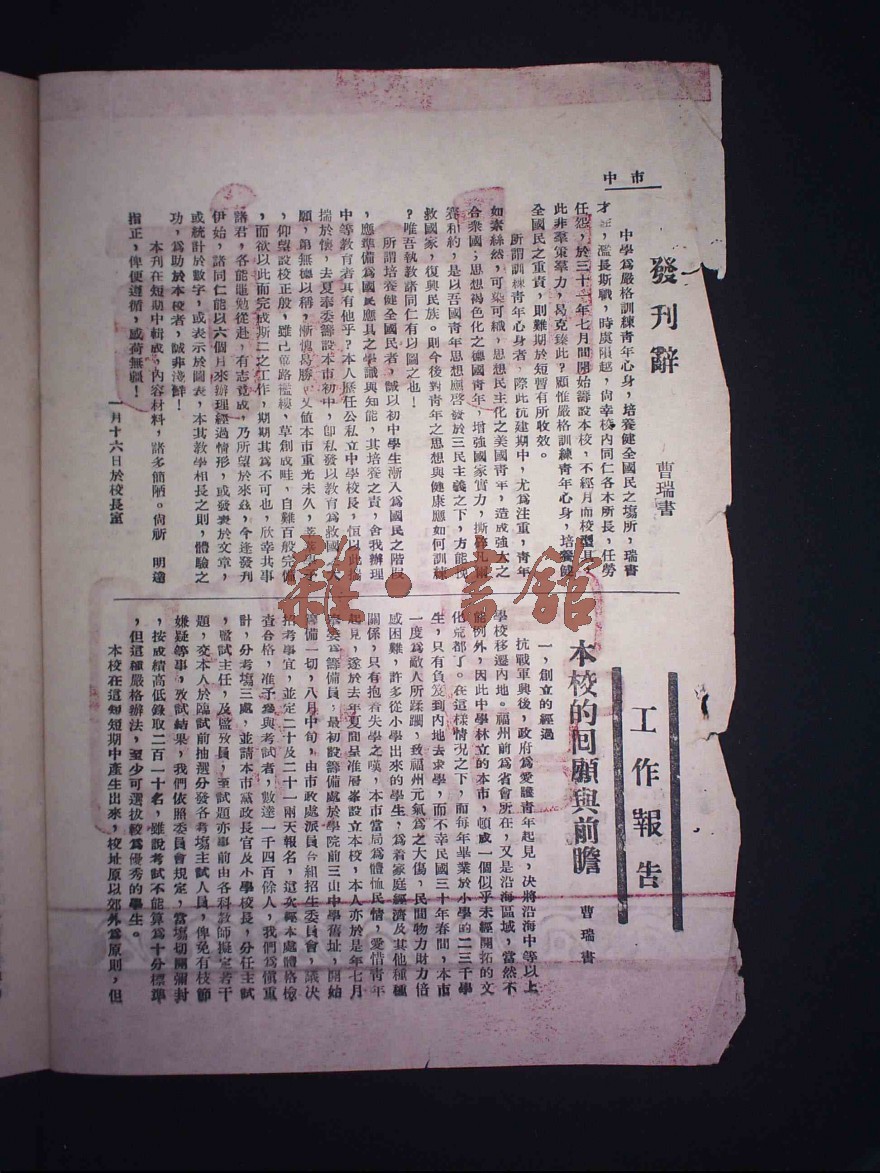 中市
發刊辭
曹瑞書
中學為嚴格訓練青年心身，培養健全國民之塲所，瑞書
才，濫長斯職，時虞隕越，尙幸校内同仁各本所長，任勞
任怨，於三十一年七月間開始籌設本校，不經月而校
此非羣策羣力，曷克臻此？顧惟嚴格訓練青年心身，培養健
全國民之重責，則難期於短暫有所收效。
所謂訓練青年心身者，際此抗建期中，尤為注重，青年
如素絲然，可染可織，思想民主化之美國青年，造成强大之
合衆國；思想褐色化之德國青年，增強國家實力，撕凡爾
賽和約，是以吾國青年思想應啓發於三民主義之下，方能挽
救國家，復興民族。則今後對青年之思想與健康應如何訓練
？唯吾執敎諸同仁有以圖之也！
所謂培養健全國民者，誠以初中學生漸入為國民之階段
，應準備為國民應具之學識與知能，其培養之責，舍我辦理
中等敎育者其有他乎？本人歷任公私立中學校長，恒以此
揣於懷，去夏奉委籌設本市初中，卽私發以敎育為救國
願，第無德以稱，慚愧曷勝，又値本市重光未久，
，仰望設校正殷，雖己蓽路襤褸，草創成畦，自難百般完備
，而欲以此而完成斯二之工作，期期其為不可也，欣幸共事
諸君，各能黽勉從赴，有志竟成，乃所望於來玆，今逢發刊
伊始，諸同仁能以六個月來辦理經過情形，或發表於文章，
或統計於數字，或表示於圖表，本其敎學相長之則，體驗之
功，為助於本校者，誠非淺鮮！
本刊在短期中輯成，内容材料，諸多簡陋。尙祈　明達
指正，俾便遵循，或荷無疆！
一月十六日於校長室
工作報告
本校的回顧與前瞻
曹瑞書
一，創立的經過
抗戰軍興後，政府為愛護青年起見，決將沿海中等以上
學校移遷内地。福州前為省會所在，又是沿海區域，當然不
能例外，因此中學林立的本市，頓成一個似乎未經開拓的文
化荒都了。在這樣情况之下，而每年畢業於小學的二三千學
生，只有負笈到内地去求學，而不幸民國三十年春間，本市
一度為敵人所蹂躪，致福州元氣為之大傷，民間物力財力倍
感困難，許多從小學出來的學生，為着家庭經濟及其他種種
關係，只有抱着失學之嘆，本市當局為體恤民情，愛惜青年
起見，遂於去年夏間呈准層峯設立本校，本人亦於是年七月
奉委為籌備員，最初設籌備處於學院前三山中學舊址，開始
籌備一切，八月中旬，由市政處派員合組招生委員會，議決
招考事宜，並定二十及二十一兩天報名，這次經本處體格檢
查合格，准予參與考試者，數達一千四百餘人，我們為愼重
計，分考塲三處，並請本市黨政長官及小學校長，分任主試
，監試主任，及監攷員，至試題亦事前由各科敎師擬定若干
題，交本人於臨試前抽選分發各考塲主試人員，俾免有枝節
嫌疑等事，攷試結果，我們依照委員會規定，當塲切關彌封
，按成績高低錄取二百一十名，雖說考試不能算為十分標準
，但這種嚴格辦法，至少可選拔較為優秀的學生。
本校在這短短期中產生出來，校址原以郊外為原則，但
雜·書館